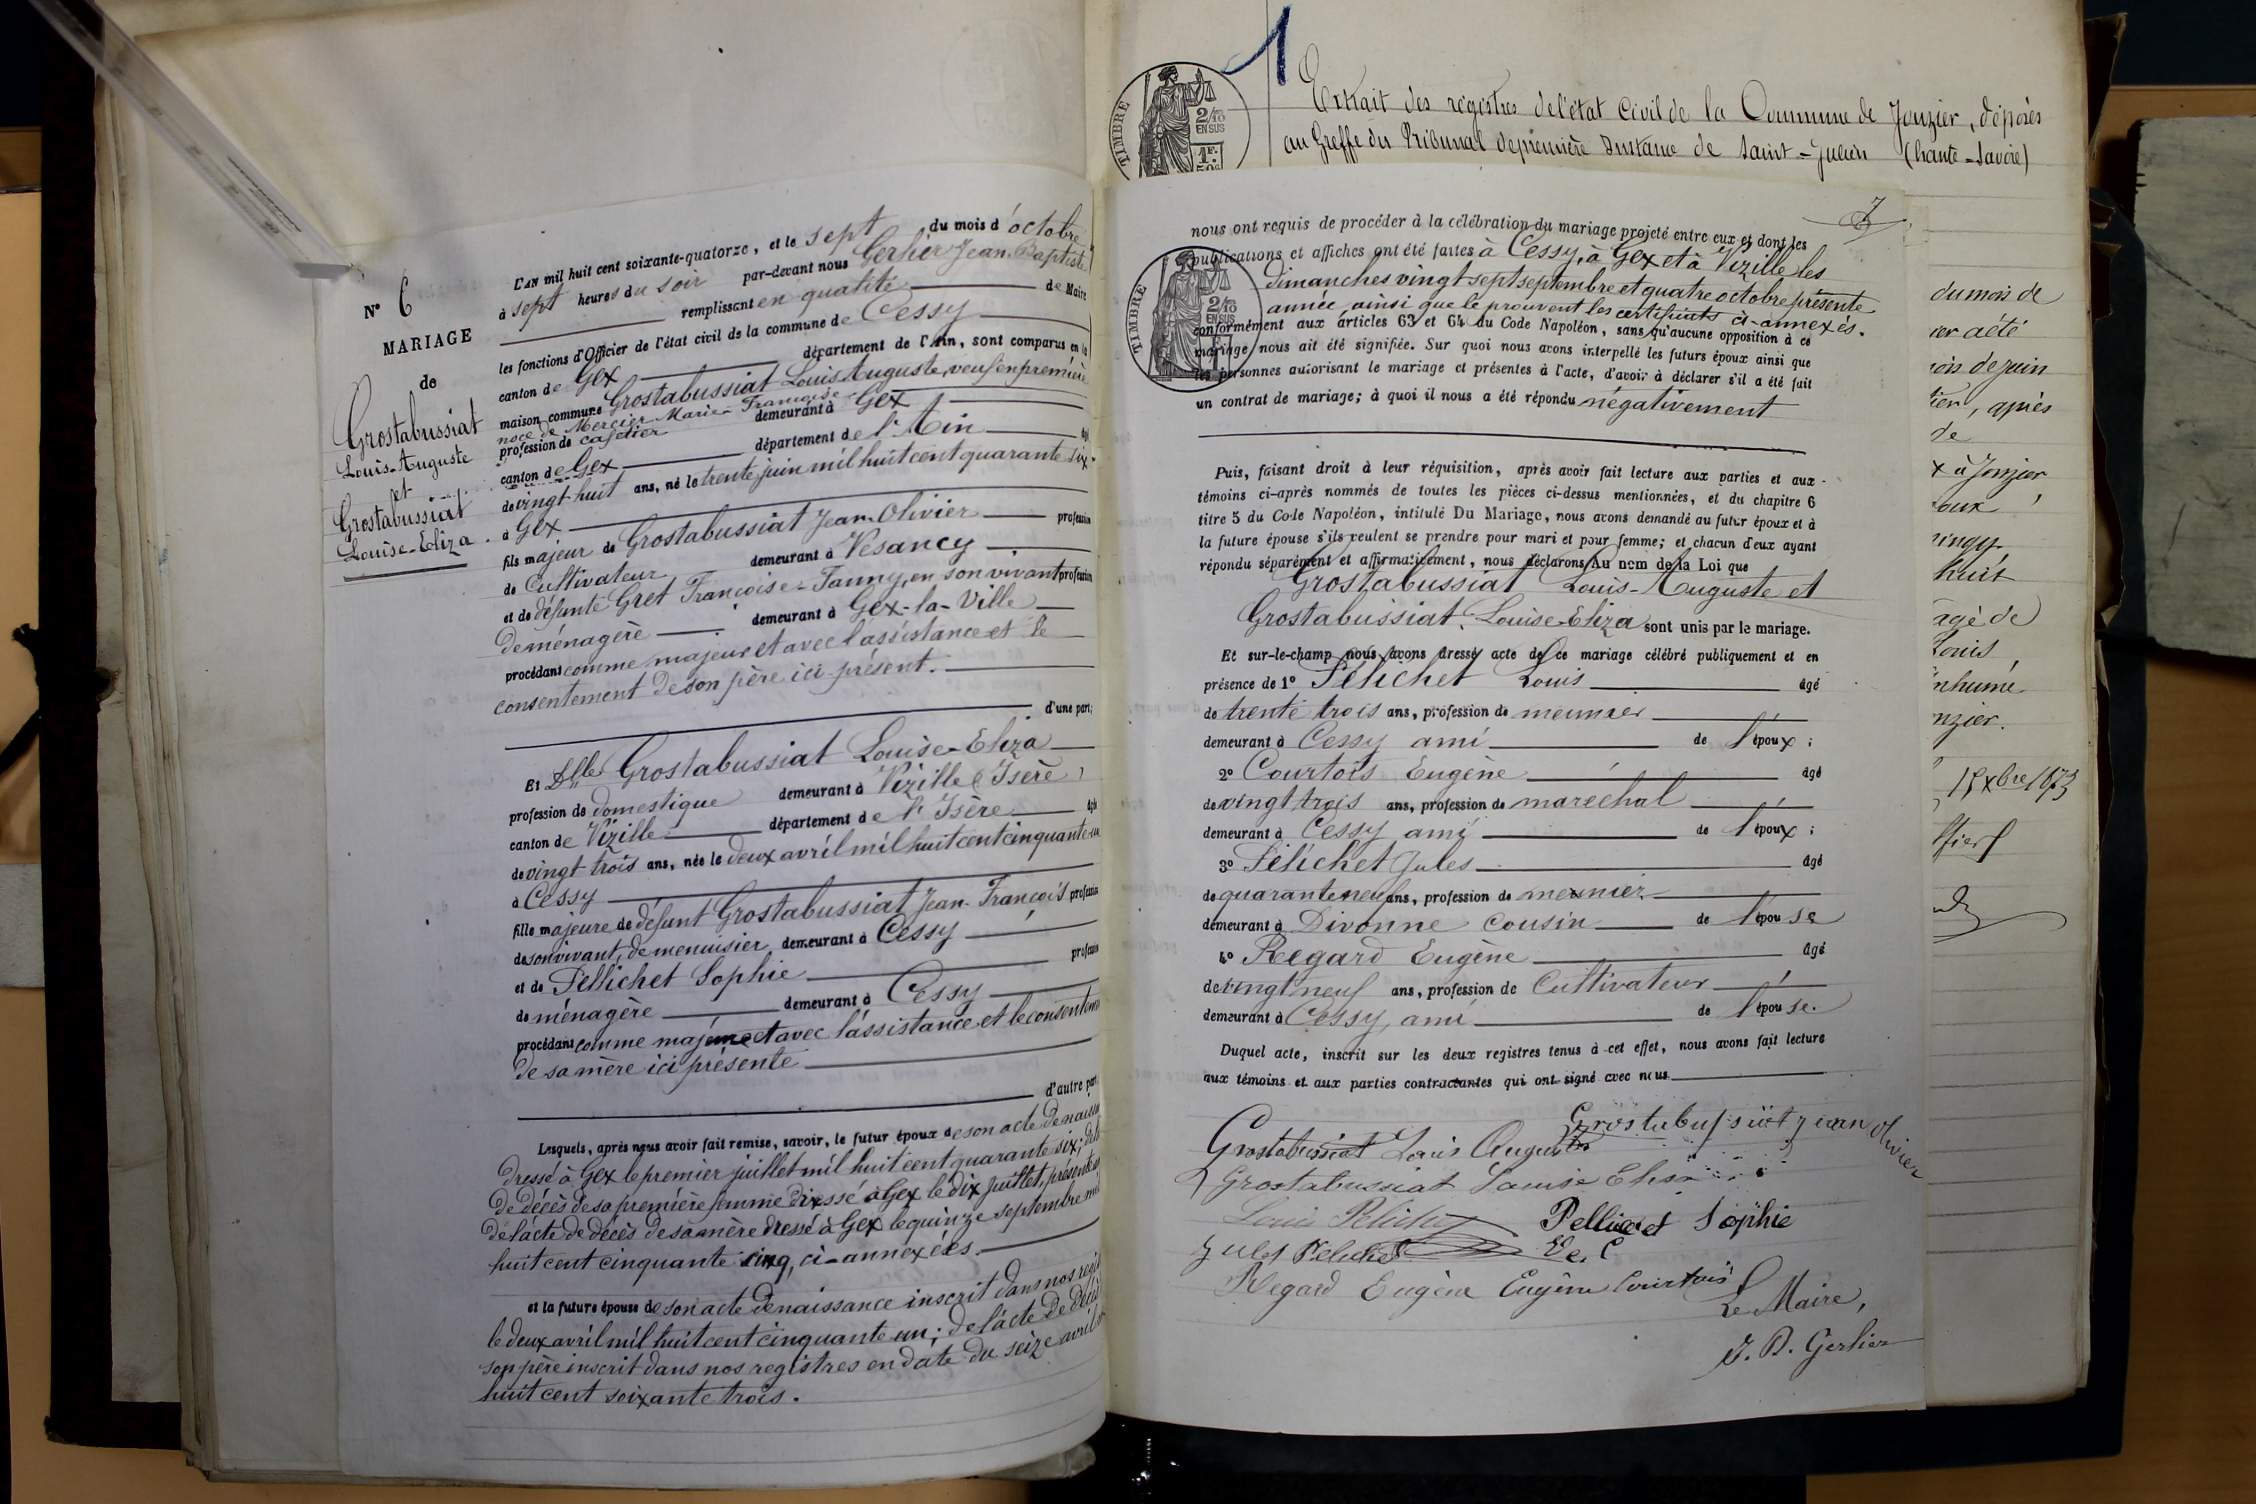 N° 6
MARIAGE
de
Grostabussiat
Louis-Auguste
et
Grostabussiat
Louise-Eliza
L'AN mil huit cent soixante-quatorze, et le sept du mois d'octobre
à sept heures du soir par-devant nous Gerlier Jean-Baptiste
remplissant en qualité de Maire
les fonctions d'Officier de l'état civil de la commune de Cessy
canton de Gex département de l'Ain, sont comparus en la
maison commune Grostabussiat Louis Auguste, veuf en première
noce de Mercier Marie-Françoise
profession de cafetier demeurant à Gex
canton de Gex département de l'Ain âgé
de vingt-huit ans, né le trente juin mil huit cent quarante six.
à Gex
fils majeur de Grostabussiat Jean-Olivier profession
de Cultivateur demeurant à Vesancy
et de défunte Gret Françoise-Fanny, en son vivant profession
de ménagère demeurant à Gex-la-Ville
procédant comme majeur et avec l'assistance et le
consentement de son père ici présent.
d'une part;
Et Dlle Grostabussiat Louise-Eliza
profession de domestique demeurant à Vizille (Isère)
canton de Vizille département de l'Isère âgée
de vingt trois ans, née le deux avril mil huit cent cinquante un
à Cessy
fille majeure de défunt Grostabussiat Jean-François profession
de son vivant, de menuisier demeurant à Cessy
et de Pellichet Sophie profession
de ménagère demeurant à Cessy
procédant comme majeure et avec l'assistance et le consentement
de sa mère ici présente
d'autre part
Lesquels, après nous avoir fait remise, savoir, le futur époux de son acte de naissance
dressé à Gex le premier juillet mil huit cent quarante six; de
de décès de sa première femme dressé à Gex le dix juillet, présente
de l'acte de décès de sa mère dressé à Gex le quinze septembre mil
huit cent cinquante cinq, ci-annexées.
et la future épouse de son acte de naissance inscrit dans nos
le deux avril mil huit cent cinquante un; de l'acte de décès
son père inscrit dans nos registres en date du seize avril
huit cent soixante trois.
1
TIMBRE
2/10
EN SUS
1F.
50c
Extrait des registres de l'état Civil de la Commune de Jonzier, déposés
au Greffe du Tribunal de première Instance de Saint-Julien (haute-Savoie)
nous ont requis de procéder à la célébration du mariage projeté entre eux et dont les
publications et affiches ont été faites à Cessy, à Gex et à Vizille les
dimanches vingt sept septembre et quatre octobre présente
année, ainsi que le prouvent les certificats ci-annexés.
TIMBRE
2/10
EN SUS
conformément aux articles 63 et 64 du Code Napoléon, sans qu'aucune opposition à ce
mariage nous ait été signifiée. Sur quoi nous avons interpellé les futurs époux ainsi que
les personnes autorisant le mariage et présentes à l'acte, d'avoir à déclarer s'il a été fait
un contrat de mariage; à quoi il nous a été répondu négativement
Puis, faisant droit à leur réquisition, après avoir fait lecture aux parties et aux
témoins ci-après nommés de toutes les pièces ci-dessus mentionnées, et du chapitre 6
titre 5 du Code Napoléon, intitulé Du Mariage, nous avons demandé au futur époux et à
la future épouse s'ils veulent se prendre pour mari et pour femme; et chacun d'eux ayant
répondu séparément et affirmativement, nous déclarons Au nom de la Loi que
Grostabussiat Louis-Auguste et
Grostabussiat, Louise-Eliza sont unis par le mariage.
Et sur-le-champ nous avons dressé acte de ce mariage célébré publiquement et en
présence de 1° Pélichet Louis âgé
de trente trois ans, profession de meunier
demeurant à Cessy ami de l'époux;
2° Courtois Eugène âgé
de vingt trois ans, profession de maréchal
demeurant à Cessy ami de l'époux;
3° Pélichet Jules âgé
de quarante neuf ans, profession de meunier
demeurant à Divonne cousin de l'épouse
4° Regard Eugène âgé
de vingt neuf ans, profession de Cultivateur
demeurant à Cessy, ami de l'épouse.
Duquel acte, inscrit sur les deux registres tenus à cet effet, nous avons fait lecture
aux témoins et aux parties contractantes qui ont signé avec nous
Grostabussiat jean olivier
Grostabussiat Louis Auguste
Grostabussiat Louise Elisa
Louis Pelichet Pellichet Sophie
Jules Pelichet Ve. C
Regard Eugène Eugène Courtois
Le Maire,
J. B. Gerlier
du mois de
a été
mois de juin
après
de
à Jonzier
huit
agé de
Louis
inhumé
Xbre 1873